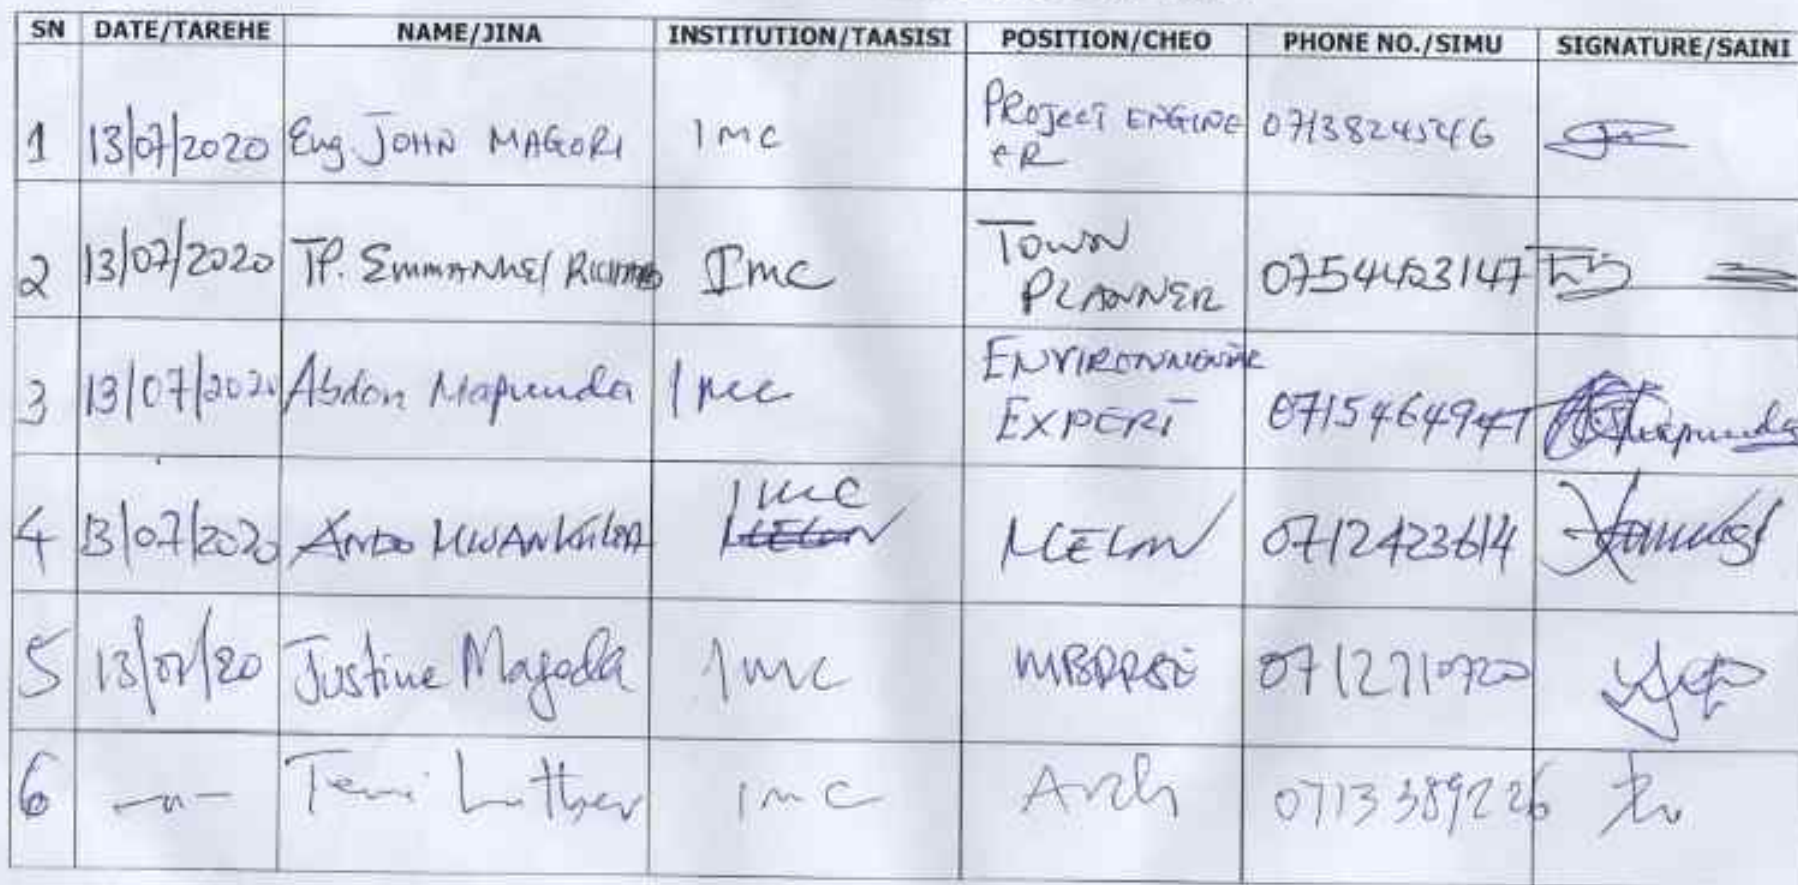 SN DATE/TAREHE NAME/JINA INSTITUTION/TAASISI POSITION/CHEO PHONE NO./SIMU SIGNATURE/SAINI
1 13/07/2020 Eng. JOHN MAGORI IMC PROJECT ENGINE 0713824546
ER
2 13/07/2020 TP. EMMANUEL RICHARD IMC TOWN
PLANNER 0754453147
3 13/07/2020 Abdon Mapunda IMC
EXPERT 0715464947 Mapunda
4 13/07/2020 IMC 0712423614
5 13/07/20 Justine IMC 0712710720
6 —"— Luther IMC Arch 0713389226